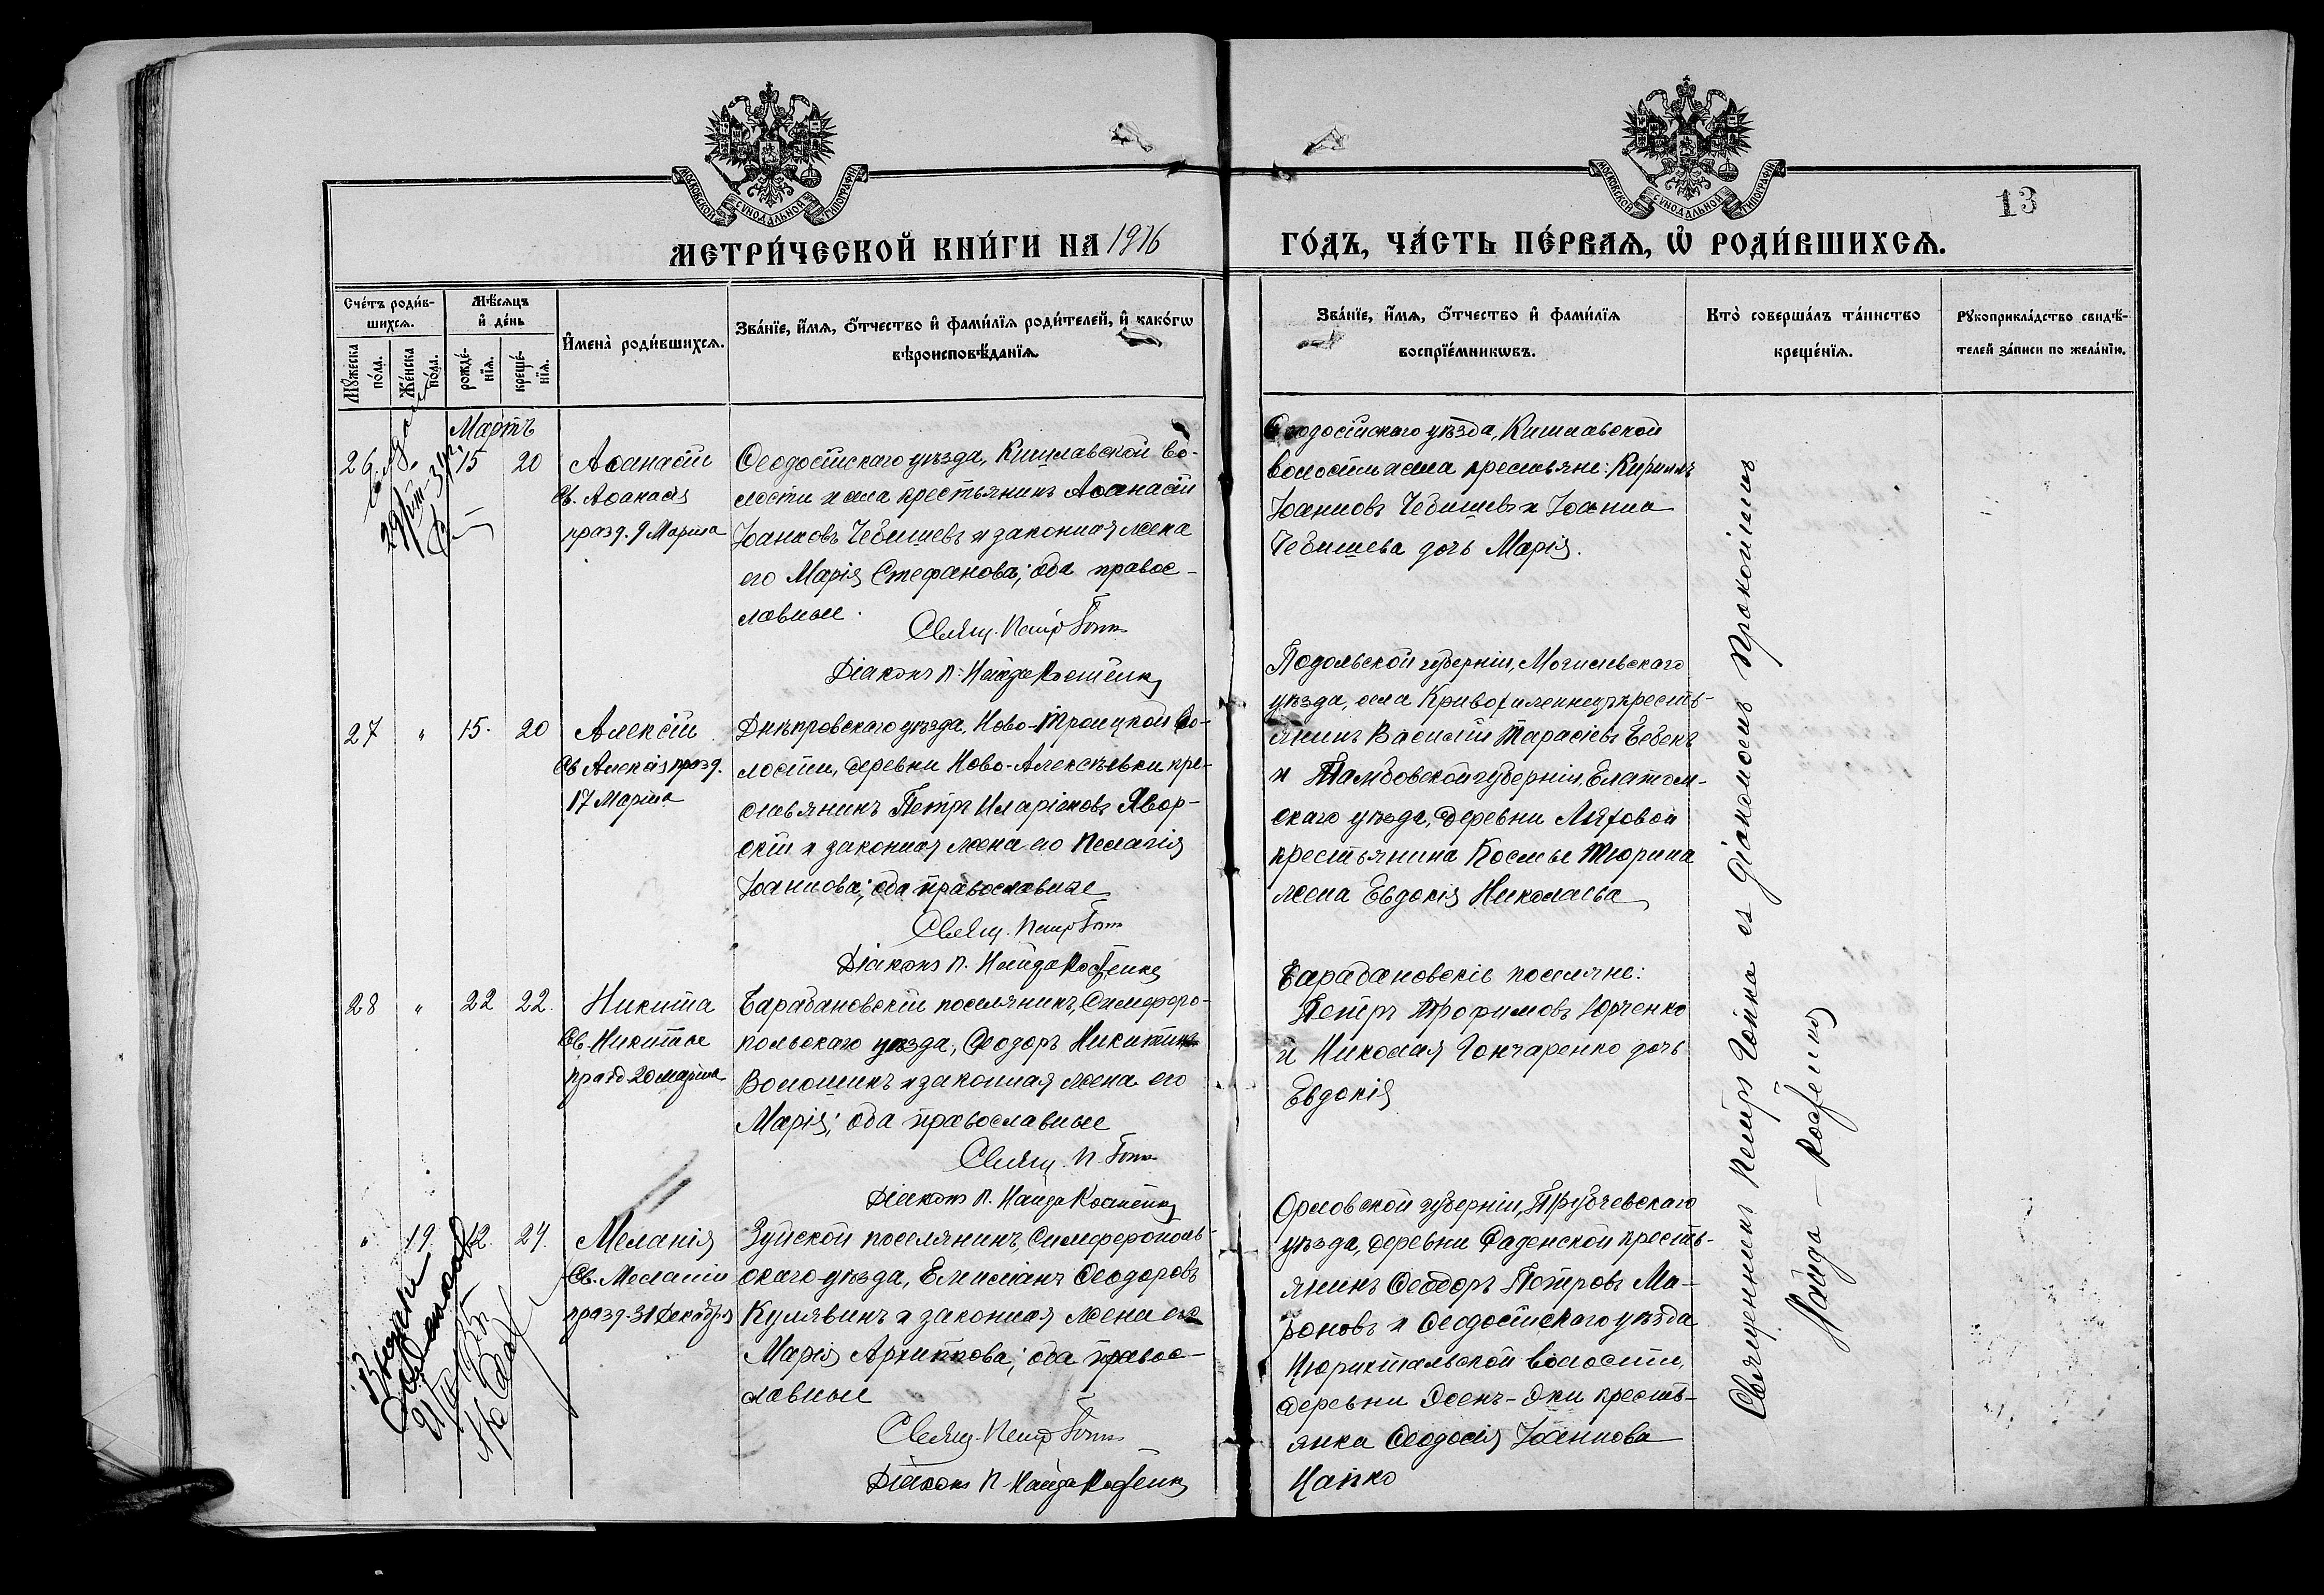 МОСКОВСКОЙ СѴНОДАЛЬНОЙ ТИПОГРАФІИ
МОСКОВСКОЙ СѴНОДАЛЬНОЙ ТИПОГРАФІИ
13
МЕТРИ́ЧЕСКОЙ КНИ́ГИ НА 1916 ГО́ДЪ, ЧА́СТЬ ПЕ́РВАЯ, Ѿ РОДИ́ВШИХСЯ.
Сче́тъ роди́в-
шихся.
Мꙋ́жеска по́ла.
Же́нска по́ла.
Мѣ́сяцъ
и҆ де́нь
рожде́-
нїя.
креще́-
нїя.
И҆мена̀ роди́вшихся.
Зва́нїе, и҆́мя, ѻ҆́тчество и҆ фами́лїя роди́телей, и҆ како́гѡ
вѣроисповѣ́данїя.
Зва́нїе, и҆́мя, ѻ҆́тчество и҆ фами́лїя
воспрїе́мникѡвъ.
Кто̀ соверша́лъ та́инство
креще́нїя.
Рꙋкоприкла́дство свидѣ́-
телей за́писи по жела́нїю.
Мартъ
26. 15 20
Аѳанасій
Св. Аѳанасія
празд. 9 Марта
Ѳеодосійскаго уѣзда, Кишлавской во-
лости и села крестьянинъ Аѳанасій
Іоанновъ Чебышевъ и законная жена
его Марія Стефанова; оба правос-
лавные.
Свящ. Петръ
Діаконъ П. Найда Костенко
Ѳеодосійскаго уѣзда, Кишлавской
волости и села крестьяне: Кириллъ
Іоанновъ Чебышевъ и Іоанна
Чебышева дочь Марія.
27 " 15. 20
Алексій
Св. Алексія празд.
17 Марта
Днѣпровскаго уѣзда, Ново-Троицкой во-
лости, деревни Ново-Алексѣевки кре-
стьянинъ Петръ Иларіоновъ Явор-
скій и законная жена его Пелагія
Іоаннова; оба православные
Свящ. Петръ
Діаконъ П. Найда Костенко
Подольской губерніи, Могилевскаго
уѣзда, села кресть-
янинъ Василій Тарасіевъ
и Тамбовской губерніи, Елатом-
скаго уѣзда, деревни Ляховой
крестьянина Космы Тюрина
жена Евдокія Николаева
28 " 22 22.
Никита
Св. Никиты
празд 20 марта
Барабановскій поселянинъ, Симферо-
польскаго уѣзда, Ѳеодоръ Никитинъ
Волошинъ и законная жена его
Марія; оба православные
Свящ. П.
Діаконъ П. Найда Костенко
Барабановскіе поселяне:
Петръ Трофимовъ Юрченко
и Николая Гончаренко дочь
Евдокія
" 19. 12. 24.
Меланія
Св. Меланіи
празд. 31 Декабря
Зуйской поселянинъ, Симферополь-
скаго уѣзда, Емиліанъ Ѳеодоровъ
Кулявинъ и законная жена его
Марія Архиппова; оба правос-
лавные
Свящ. Петръ
Діаконъ П. Найда Костенко
Орловской губерніи, Трубчевскаго
уѣзда, деревни Раденской кресть-
янинъ Ѳеодоръ Петровъ Ма-
роновъ и Ѳеодосійскаго уѣзда
Цюрихтальской волости,
деревни Эсенъ-Эки кресть-
янка Ѳеодосія Іоаннова
Цапко
Священникъ Петръ съ діакономъ Прокопіемъ
Найда - Костенко